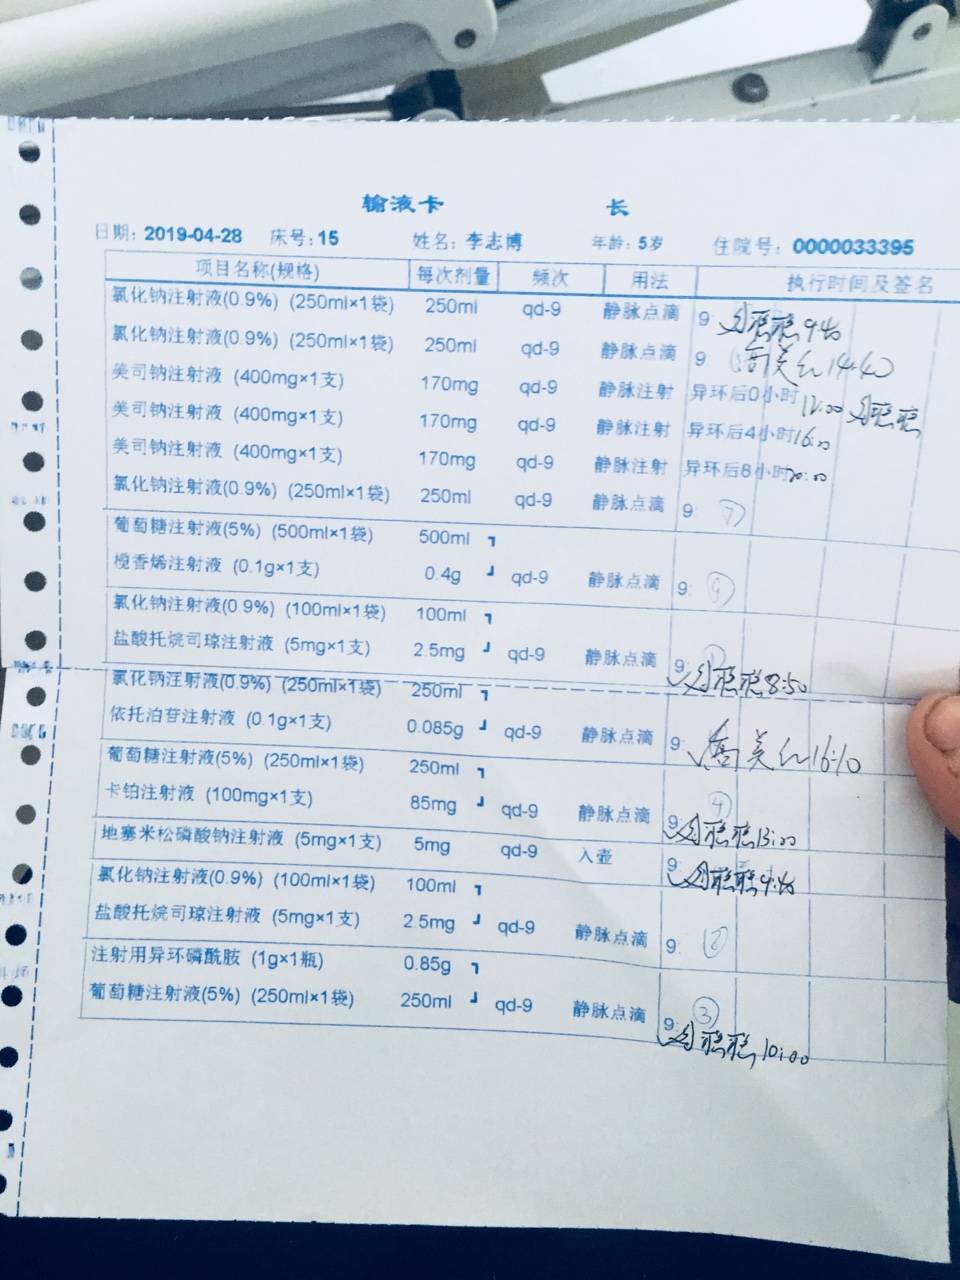 输液卡 长
日期: 2019-04-28 床号: 15 姓名: 李志博 年龄: 5岁 住院号: 0000033395
项目名称(规格) 每次剂量 频次 用法 执行时间及签名
氯化钠注射液(0.9%) (250ml×1袋) 250ml qd-9 静脉点滴 9: 9:40
氯化钠注射液(0.9%) (250ml×1袋) 250ml qd-9 静脉点滴 9: 14:40
美司钠注射液 (400mg×1支) 170mg qd-9 静脉注射 异环后0小时 12:00
美司钠注射液 (400mg×1支) 170mg qd-9 静脉注射 异环后4小时 16:00
美司钠注射液 (400mg×1支) 170mg qd-9 静脉注射 异环后8小时 20:00
氯化钠注射液(0.9%) (250ml×1袋) 250ml qd-9 静脉点滴 9: ⑦
葡萄糖注射液(5%) (500ml×1袋) 500ml ┓
榄香烯注射液 (0.1g×1支) 0.4g ┛ qd-9 静脉点滴 9:
氯化钠注射液(0.9%) (100ml×1袋) 100ml ┓
盐酸托烷司琼注射液 (5mg×1支) 2.5mg ┛ qd-9 静脉点滴 9: 8:50
氯化钠注射液(0.9%) (250ml×1袋) 250ml ┓
依托泊苷注射液 (0.1g×1支) 0.085g ┛ qd-9 静脉点滴 9: 16:10
葡萄糖注射液(5%) (250ml×1袋) 250ml ┓
卡铂注射液 (100mg×1支) 85mg ┛ qd-9 静脉点滴 9: ④ 13:00
地塞米松磷酸钠注射液 (5mg×1支) 5mg qd-9 入壶 9: 9:40
氯化钠注射液(0.9%) (100ml×1袋) 100ml ┓
盐酸托烷司琼注射液 (5mg×1支) 2.5mg ┛ qd-9 静脉点滴 9:
注射用异环磷酰胺 (1g×1瓶) 0.85g ┓
葡萄糖注射液(5%) (250ml×1袋) 250ml ┛ qd-9 静脉点滴 9: ③ 10:00